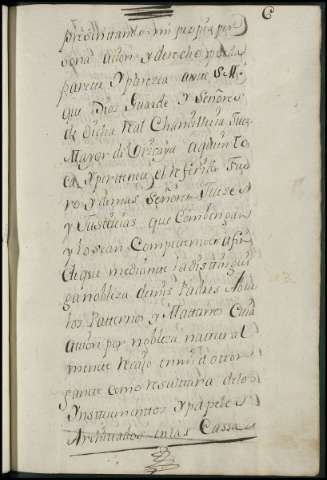 presentando mi propia per
sona accion y derecho pueda
parecer y paresca ante S. M.
que Dios Guarde y Señores
de dicha Real Chancilleria Juez
Mayor de Vizcaya a quien to
ca y pertenece el referido Fue
ro y demas Señores Juezes
y Justicias que combengan
y lo sean Competentes a fin
de que mediante la distingui
da nobleza de mis Padres Abue
los Patternos y Matternos Cuia
accion por nobleza nattural
mente recaio en mi el otor
gante como resultara de los
Ynstrumentos y papeles
Archivados en las Cassas